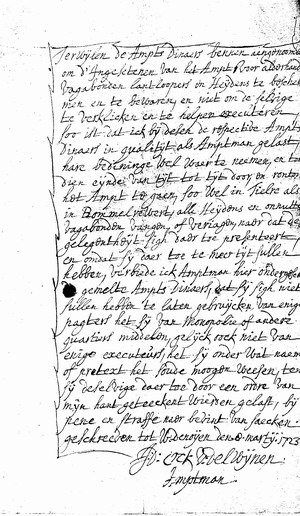 Terwijlen de Ampts Dinaers bennen aengenoomen
om d'Angesetenen van het Ampt voor alderhande
Vagabonden lantloopers en Heijdens te bescher
men en te bewaren, en niet om de selvige
te verklicken en te helpen executeren
soo ist dat ick bij desen de respective Ampts
Dinaers in qualiteijt als Amptman gelast,
hare bedeninge wel waer te neemen, en ten
dien eijnde van tijt tot tijt door en rontom
het Ampt te gaen, soo wel in Tielre als
in Bommelreweert, alle Heijdens en onnutte
vagabonden vangen, of veriagen, naer dat de
gelegentheijt sigh daer toe presenteert
en omdat sij daer toe te meer tijt sullen
hebben, verbiede ick Amptman hier
gemelte Ampts Dinaers, dat sij sigh niet
sullen hebben te laten gebruijcken van enige
pagters het sij van Mongolie of andere
quartiers middelen, gelijck oock niet van
enige executeurs, het sij onder wat naem
of pretext het soude moogen weesen, ten
sij deselvige daer toe door een ordre van
mijn hant geteeckent wierden gelast, bij
pene en straffe naer bevint van saecken.
geschreeven tot den 8 martij 1723
Cock Delwijnen
Amptman.